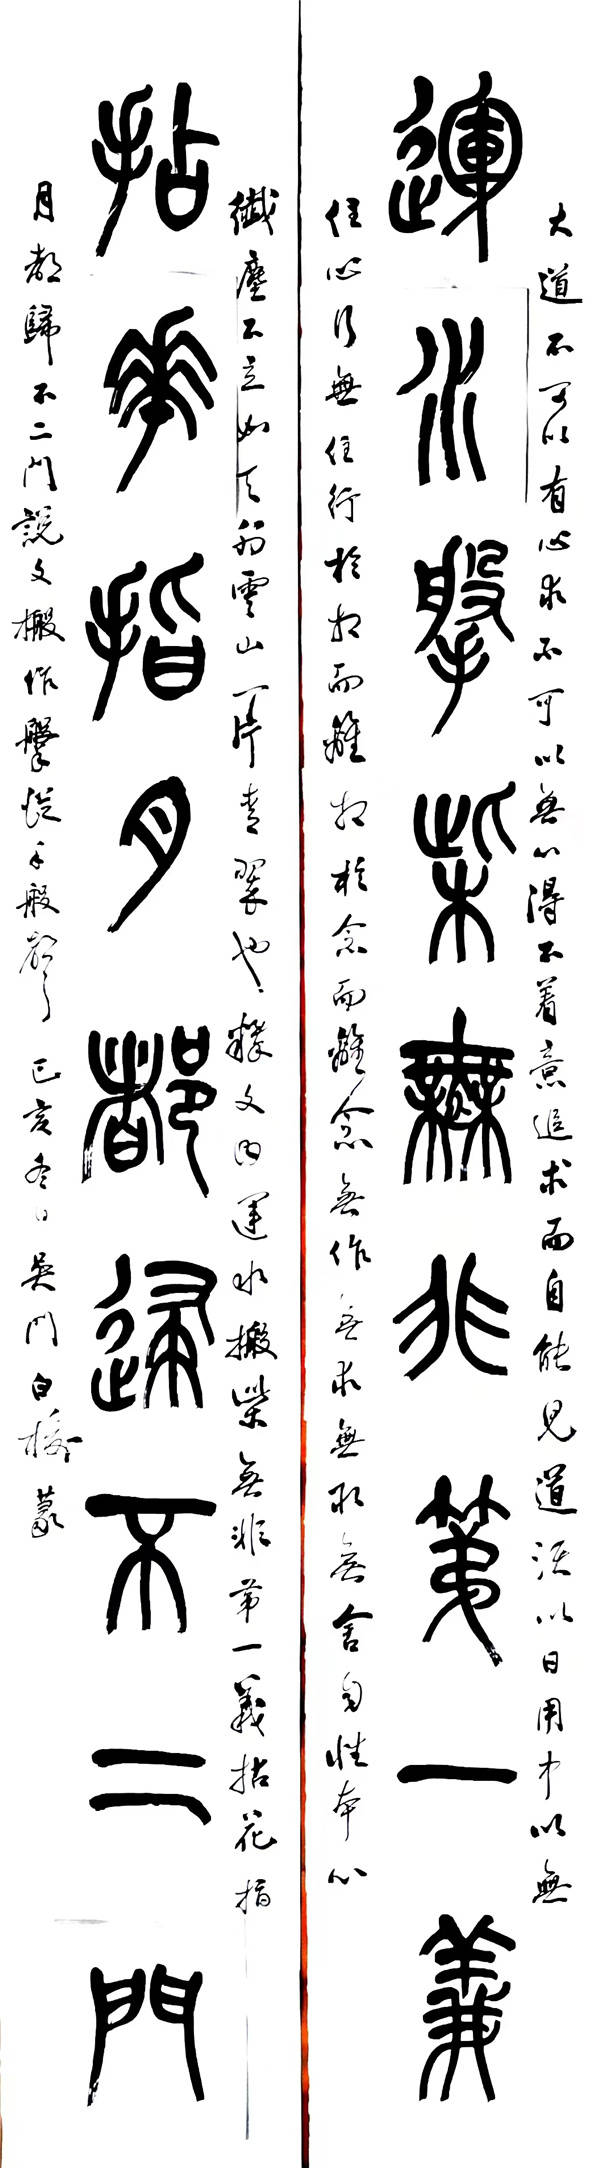 大道不可以有心求不可以無心得不着意追求而自能見道以日用中以無
運水搫柴無非第一義
住心行無住行於相而離相於念而離念無作無求無取無舍自性本心
纖塵不立如天雲山一片青翠也釋文曰運水搬柴無非第一義拈花指
拈華指月都歸不二門
月都歸不二門說文搬作搫從手般聲己亥冬日吳門白篆